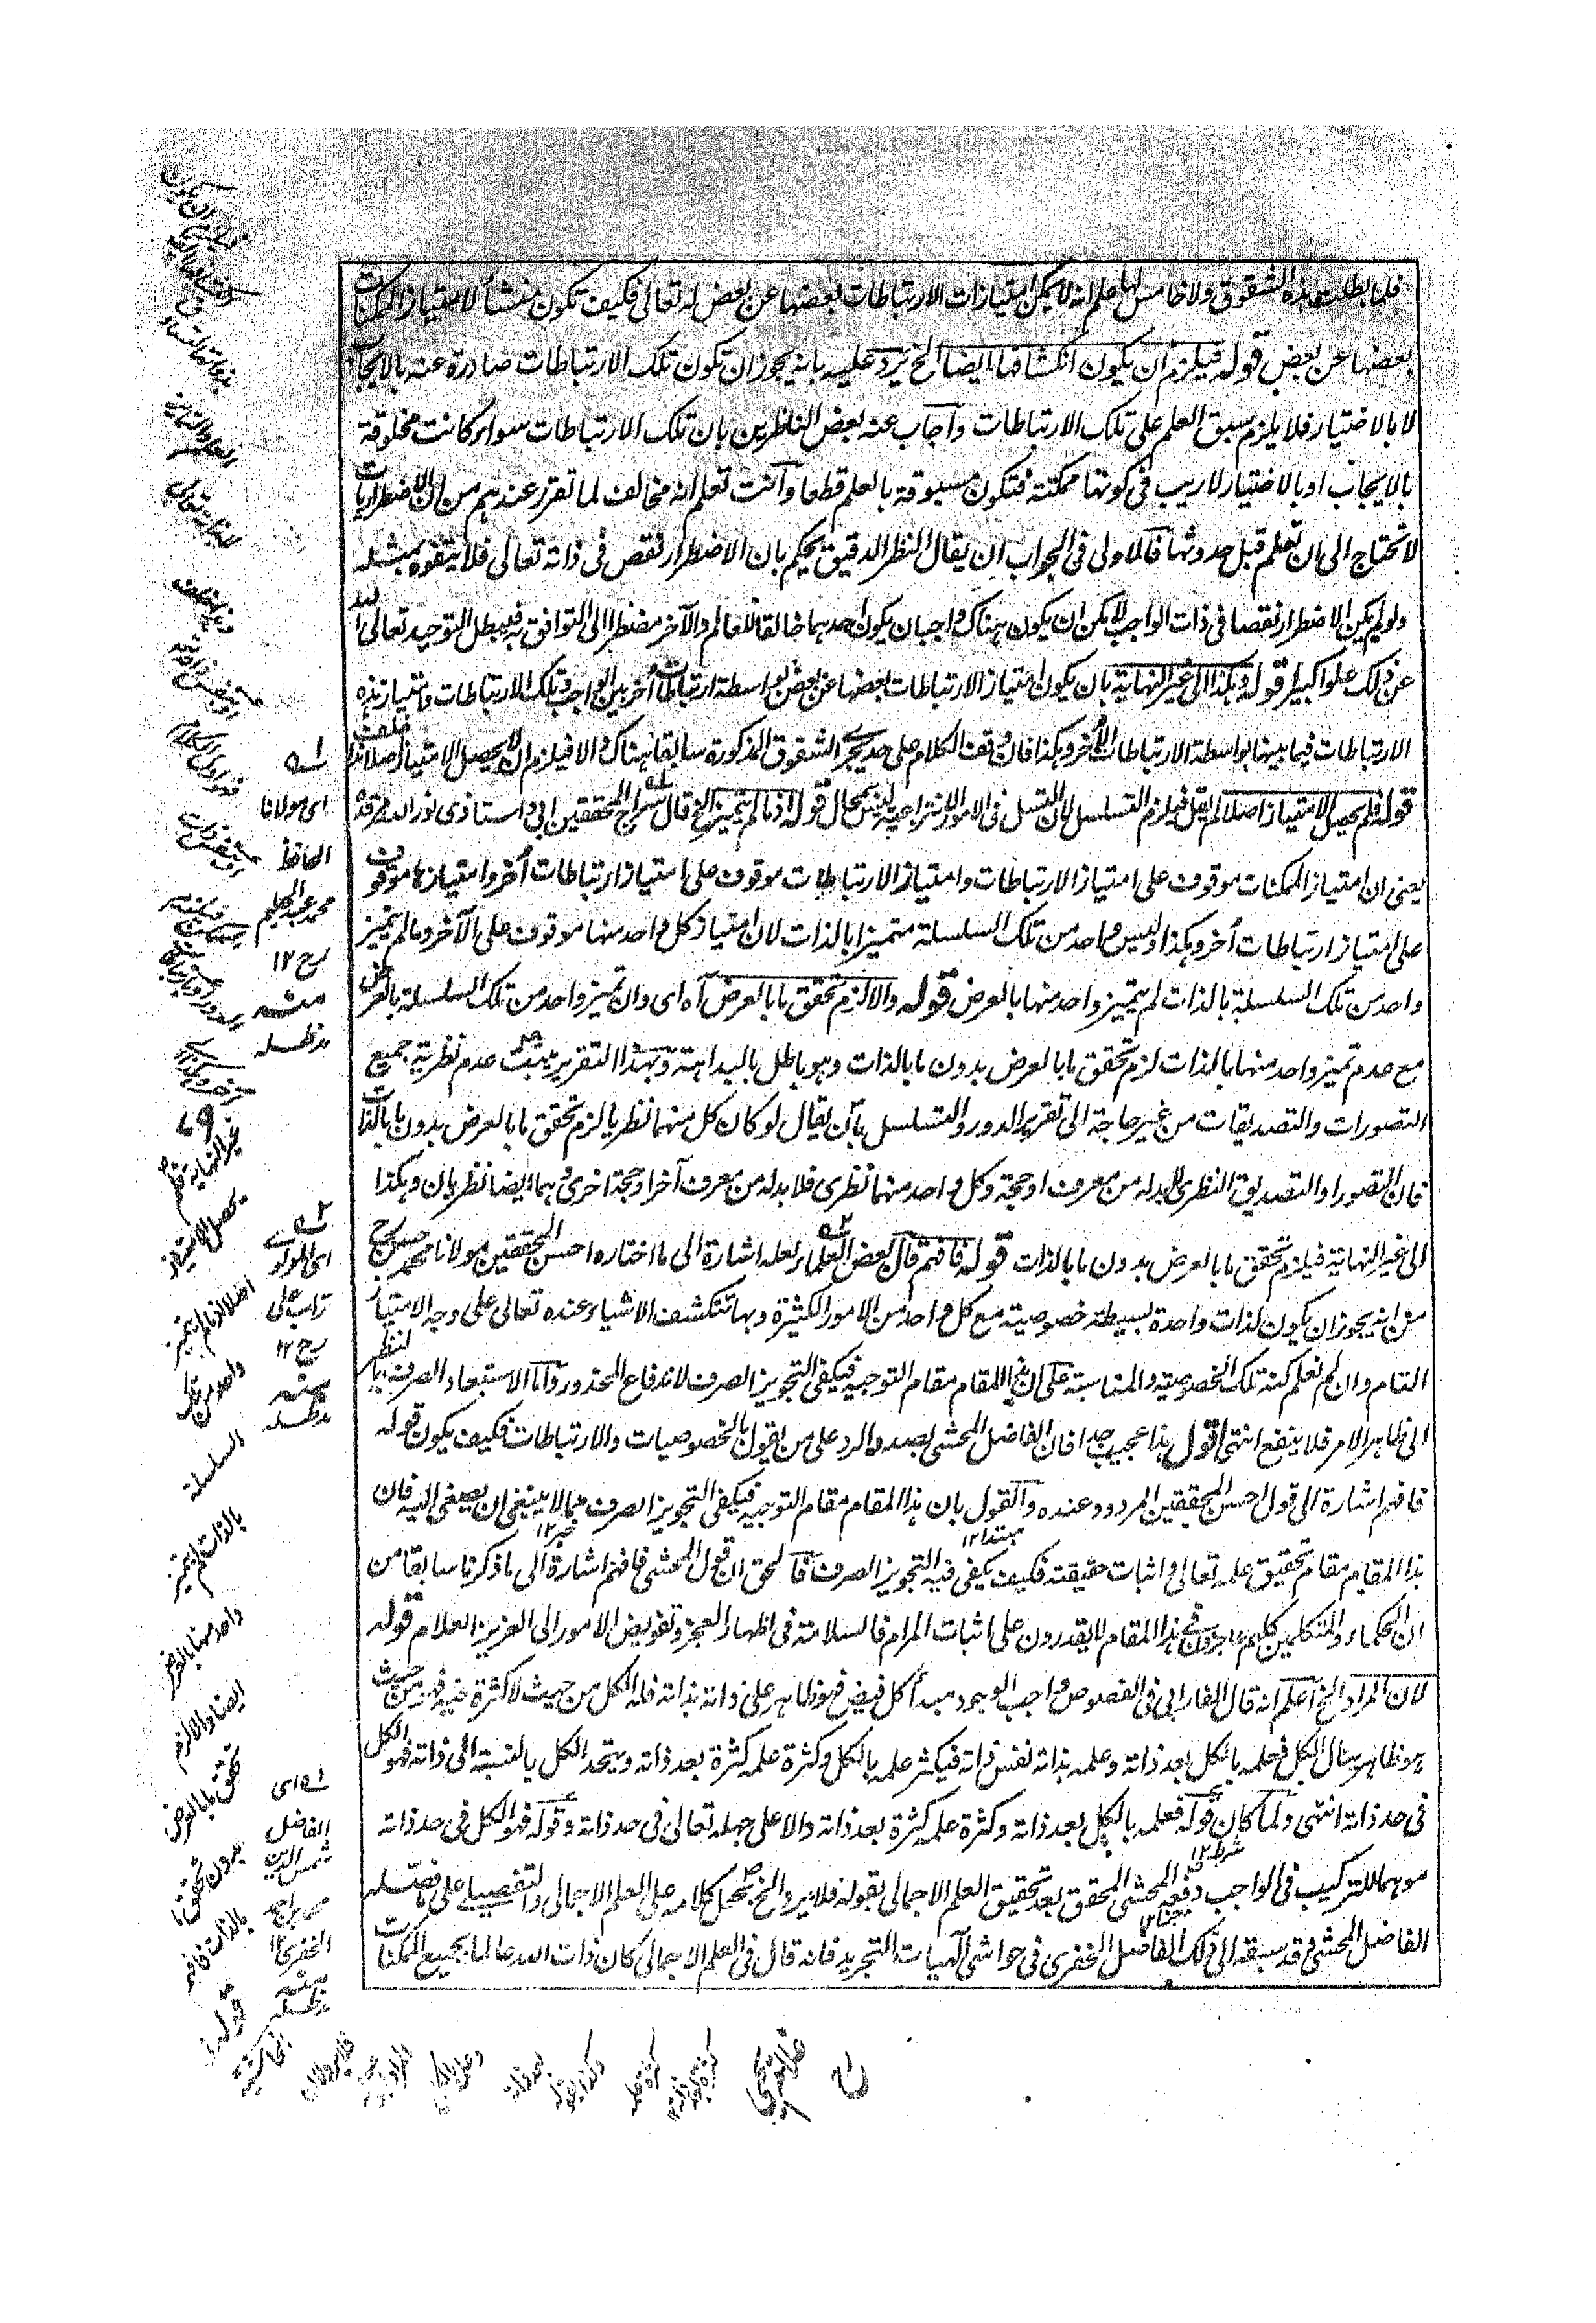 فلما بطلت هذه الشقوق ولا خامس لها علم انه لا يمكن امتيازات الارتباطات بعضها عن بعض له تعالى فكيف تكون منشأ لامتياز الممكنات
بعضها عن بعض قوله فيلزم ان يكون انكشافها ايضا الخ يرد عليه بانه يجوز ان تكون تلك الارتباطات صادرة عنه بالايجاب
لا بالاختيار فلا يلزم سبق العلم على تلك الارتباطات واجاب عنه بعض الناظرين بان تلك الارتباطات سواء كانت مخلوقة
بالايجاب او بالاختيار لا ريب فى كونها ممكنة فتكون مسبوقة بالعلم قطعا وانت تعلم انه مخالف لما تقرر عندهم من ان الاضطراريات
لا تحتاج الى ان تعلم قبل حدوثها فالاولى فى الجواب ان يقال النظر الدقيق يحكم بان الاضطرار نقص فى ذاته تعالى فلا يتفوه بمثله
ولو لم يكن الاضطرار نقصا فى ذات الواجب لامكن ان يكون هناك واجبان يكون احدهما خالقا للعالم والآخر مضطرا الى التوافق به فيبطل التوحيد تعالى الله
عن ذلك علوا كبيرا قوله وهكذا الى غير النهاية بان يكون امتياز الارتباطات بعضها عن بعض بواسطة ارتباطات أخر بين الواجب وتلك الارتباطات وامتياز هذه
الارتباطات فيما بينها بواسطة الارتباطات الأخر وهكذا فان وقف الكلام على حد يجر الشقوق المذكورة سابقا هناك والا فيلزم ان لا يحصل الامتياز اصلا هذا خلف
قوله فلم يحصل الامتياز اصلا لم يقل فيلزم التسلسل لان التسلسل فى الامور الانتزاعية ليس بمحال قوله اذ ما لم يتميز الخ قال سراج المحققين ابى واستاذى نور الله مرقده
يعنى ان امتياز الممكنات موقوف على امتياز الارتباطات وامتياز الارتباطات موقوف على امتياز ارتباطات أخر وامتيازها موقوف
على امتياز ارتباطات أخر وهكذا وليس واحد من تلك السلسلة متميزا بالذات لان امتياز كل واحد منها موقوف على الآخر وما لم يتميز
واحد من تلك السلسلة بالذات لم يتميز واحد منها بالعرض قوله والا لزم تحقق ما بالعرض آه اى وان تميز واحد من تلك السلسلة بالعرض
مع عدم تميز واحد منها بالذات لزم تحقق ما بالعرض بدون ما بالذات وهو باطل بالبداهة وبهذا التقرير يثبت عدم نظرية جميع
التصورات والتصديقات من غير حاجة الى تقرير الدور والتسلسل بان يقال لو كان كل منهما نظريا لزم تحقق ما بالعرض بدون ما بالذات
فان التصور او التصديق النظرى لا بد له من معرف او حجة وكل واحد منهما نظرى فلا بد له من معرف آخر او حجة اخرى وهما ايضا نظريان وهكذا
الى غير النهاية فيلزم تحقق ما بالعرض بدون ما بالذات قوله فافهم قال بعض العلماء لعله اشارة الى ما اختاره احسن المحققين مولانا محمد حسن رح
من انه يجوز ان يكون لذات واحدة بسيطة خصوصية مع كل واحد من الامور الكثيرة وبها تنكشف الاشياء عنده تعالى على وجه الامتياز
التام وان لم نعلم كنه تلك الخصوصية والمناسبة على ان هذا المقام مقام التوجيه فيكفى التجويز الصرف لاندفاع المحذور واما الاستبعاد الصرف بالنظر
الى ظاهر الامر فلا ينفع انتهى اقول هذا عجيب جدا فان الفاضل المحشى بصدد الرد على من يقول بالخصوصيات والارتباطات فكيف يكون قوله
فافهم اشارة الى قول احسن المحققين المردود عنده والقول بان هذا المقام مقام التوجيه فيكفى التجويز الصرف مما لا ينبغى ان يصغى اليه فان
هذا المقام مقام تحقيق علمه تعالى واثبات حقيقته فكيف يكفى فيه التجويز الصرف فالحق ان قول المحشى فافهم اشارة الى ما ذكرنا سابقا من
ان الحكماء والمتكلمين كلهم عاجزون فى هذا المقام لا يقدرون على اثبات المرام فالسلامة فى اظهار العجز وتفويض الامور الى العزيز العلام قوله
لان المراد الخ اعلم انه قال الفارابى فى الفصوص واجب الوجود مبدأ كل فيض فهو ظاهر على ذاته بذاته فله الكل من حيث لا كثرة فيه فهو من حيث
هو ظاهر ينال الكل فعلمه بالكل بعد ذاته وعلمه بذاته نفس ذاته فيكثر علمه بالكل وكثرة علمه كثرة بعد ذاته ويتحد الكل بالنسبة الى ذاته فهو الكل
فى حد ذاته انتهى ولما كان قوله فعلمه بالكل بعد ذاته وكثرة علمه كثرة بعد ذاته دالا على جهله تعالى فى حد ذاته وقوله فهو الكل فى حد ذاته
موهما للتركيب فى الواجب دفعه المحشى المحقق بعد تحقيق العلم الاجمالى بقوله فلا يرد الخ بحمل كلامه على العلم الاجمالى والتفصيلى على ما فصله
الفاضل المحشى وقد سبقه الى ذلك الفاضل الخفرى فى حواشى آلهيات التجريد فانه قال فى العلم الاجمالى كان ذات الله عالما بجميع الممكنات
له
اى مولانا
الحافظ
محمد عبد الحليم
رح ١٢
منه
مد ظله
٢ه
اى المولوى
تراب على
رح ١٢
منه
مد ظله
له اى
الفاضل
شمس الدين
محمد بن احمد
الخفرى ١٢
منه
مد ظله
غير النهاية فلم
يحصل الامتياز
اصلا اذ ما لم يتميز
واحد من تلك
السلسلة
بالذات لم يتميز
واحد منها بالعرض
ايضا والا لزم
تحقق ما بالعرض
بدون تحقق ما
بالذات فافهم
قوله